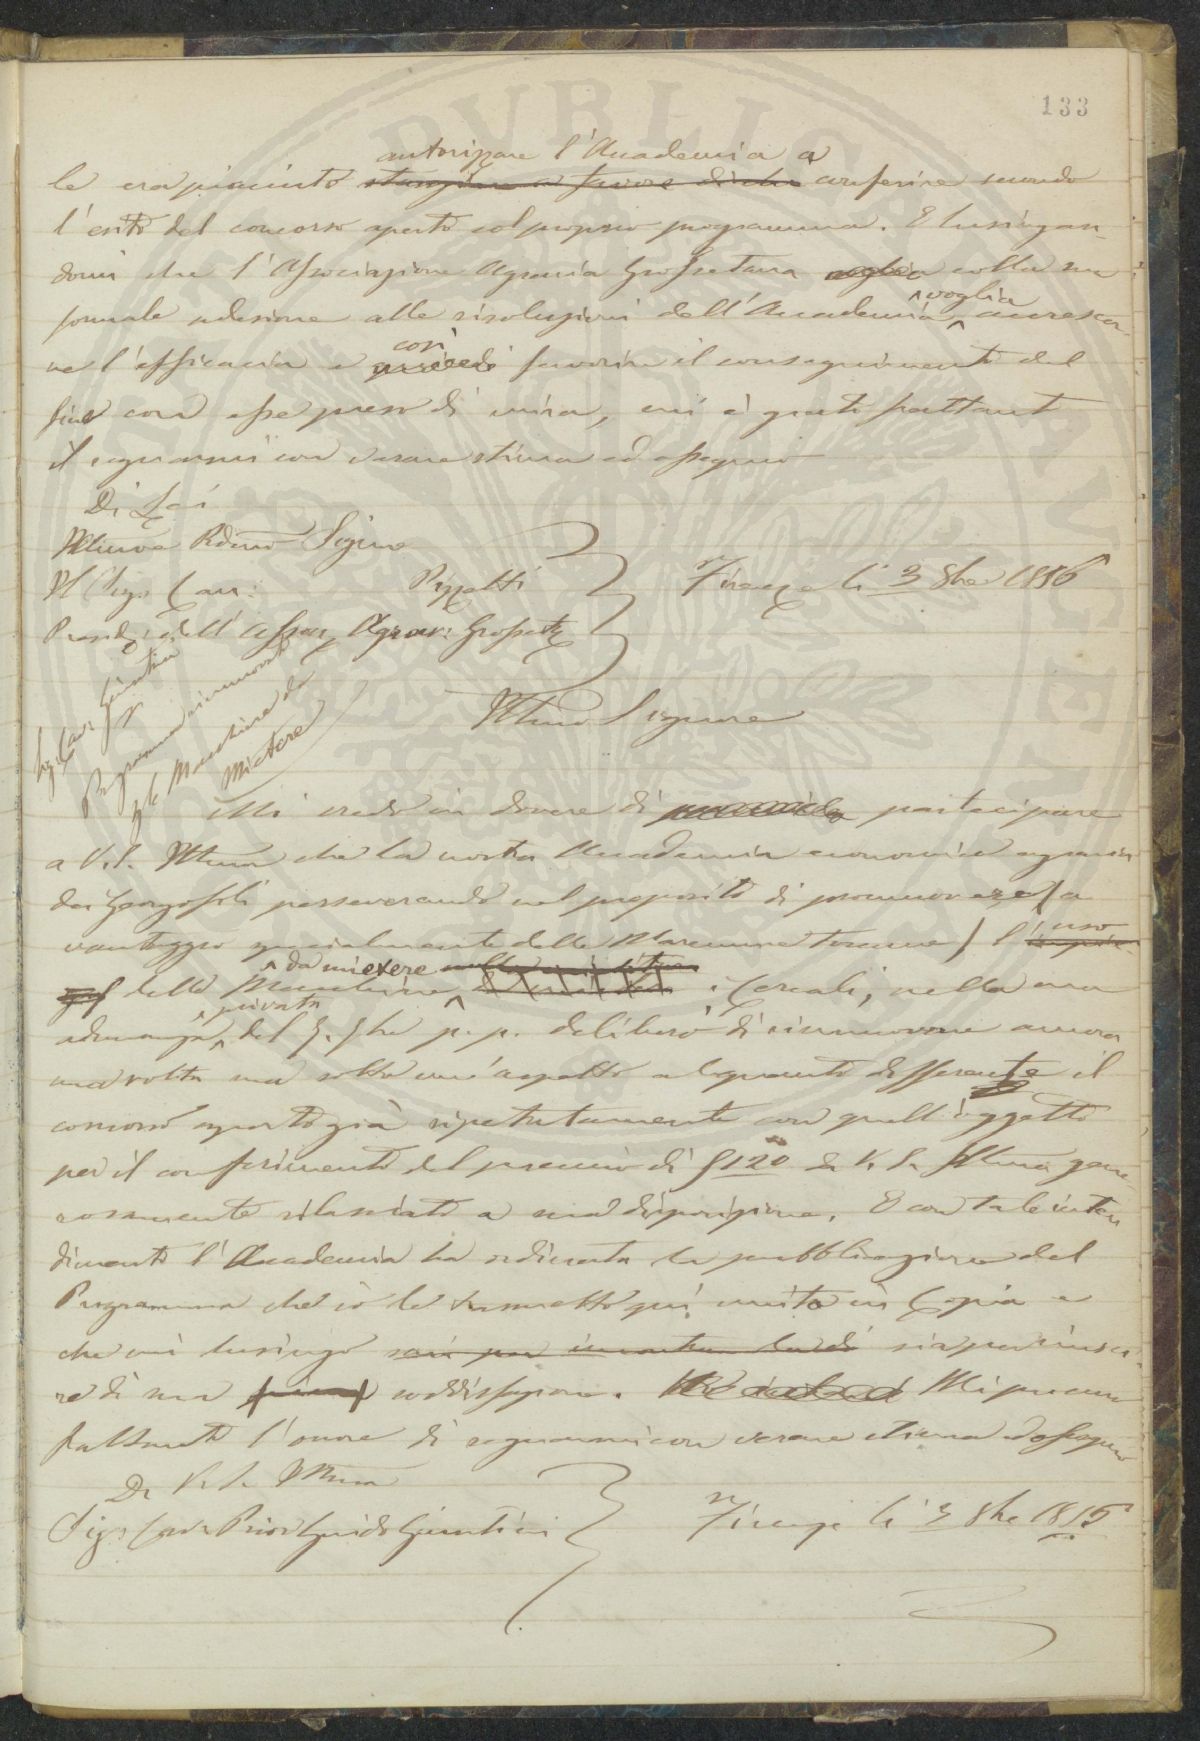 133
autorizzare l'Accademia a
le era piaciuto stanziare a favore di che conferire secondo
l'esito del concorso aperto col proprio programma. E lusingan-
domi che l'Associazione Agraria Grossetana voglia colla sua
formale adesione alle risoluzioni dell'Accademia, voglia accresce-
re l'efficacia e così favorire il conseguimento del
fine con esse preso di mira, mi è grato frattanto
il segnarmi con verace stima ed ossequio
Di Lei
Illmo e Rdmo Signe
Il Sigr Cav: Pizzetti
Firenze li 3 8bre 1856
Presidte dell'Assoz Agrar: Grosseta
Sigr Cav Giuntini
Programma rinnovato
per le Macchine da
Mietere
Illmo Signore
Mi credo in dovere di partecipare
a V.S. Illma che la nostra Accademia economico agraria
dei Georgofili perseverando nel proposito di promuovere (a
vantaggio specialmente delle Maremme Toscane) l'uso
delle Macchine da mietere i Cereali, nella sua
adunanza privata del 7bre p.p. deliberò di rinnovare ancora
una volta ma sotto un'aspetto alquanto differente il
concorso aperto già ripetutamente con quell'oggetto
per il conferimento del premio di 120 da V.S. Illma gene-
rosamente rilasciato a sua disposizione. E con tale inten
dimento l'Accademia ha ordinata la pubblicazione del
Programma che io le trasmetto qui unito in Copia e
che mi lusingo sia per riusci-
re di sua soddisfazione. Mi procuro
frattanto l'onore di segnarmi con verace stima ed ossequio
Di V.S. Illma
Sigr Cavr Prior Guido Giuntini
Firenze li 3 8bre 1856